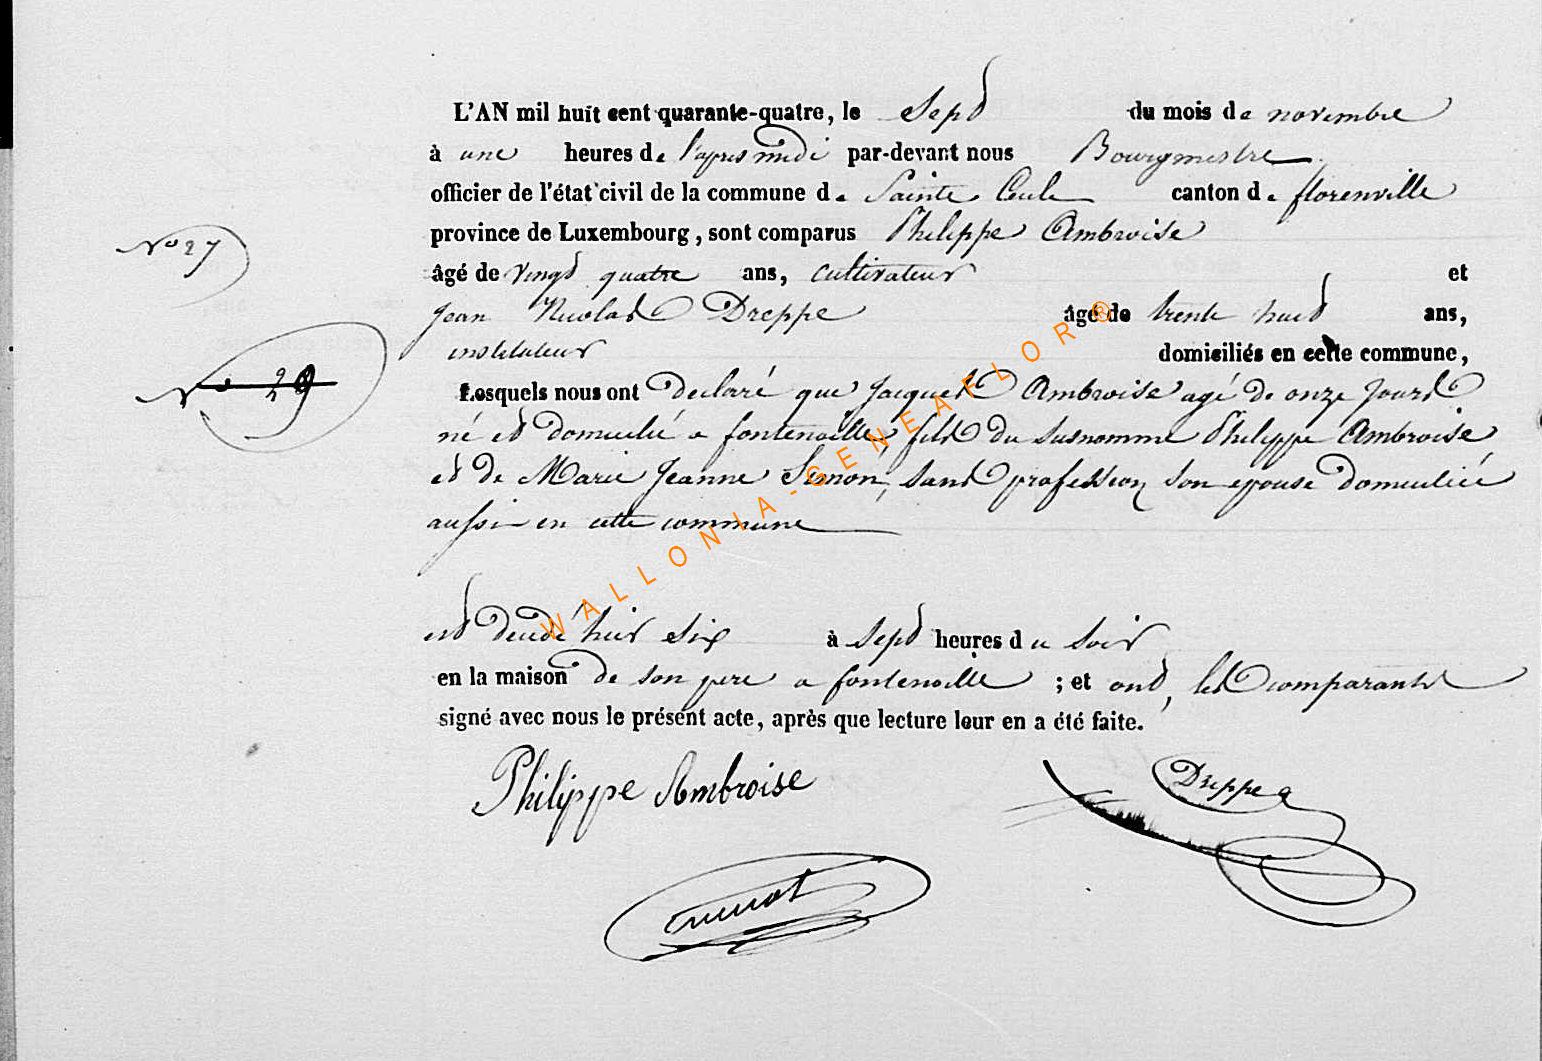 L'AN mil huit cent quarante-quatre, le sept du mois de novembre
à une heures de l'apres midi par-devant nous Bourgmestre
officier de l'état civil de la commune de Sainte Cecile canton de florenville
province de Luxembourg, sont comparus Philippe Ambroise
No 27
âgé de vingt quatre ans, cultivateur et
Jean Nicolas Dreppe âgé de trente huit ans,
instituteur domiciliés en cette commune,
No 29
Lesquels nous ont declaré que Jacques Ambroise agé de onze jours
né et domicilié a fontenoille, fils du susnomme Philippe Ambroise
et de Marie Jeanne Simon, sans profession son epouse domiciliée
aussi en cette commune
est decedé hier six à sept heures du soir
en la maison de son pere a fontenoille ; et ont, les comparants
signé avec nous le présent acte, après que lecture leur en a été faite.
Philippe Ambroise Dreppe
WALLONIA-GENEAFLOR®